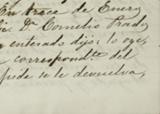 En trece de Enero
D.n Cornelio Prado
enterado dijo: lo oye,
correspond.te del
pide se le devuelva,